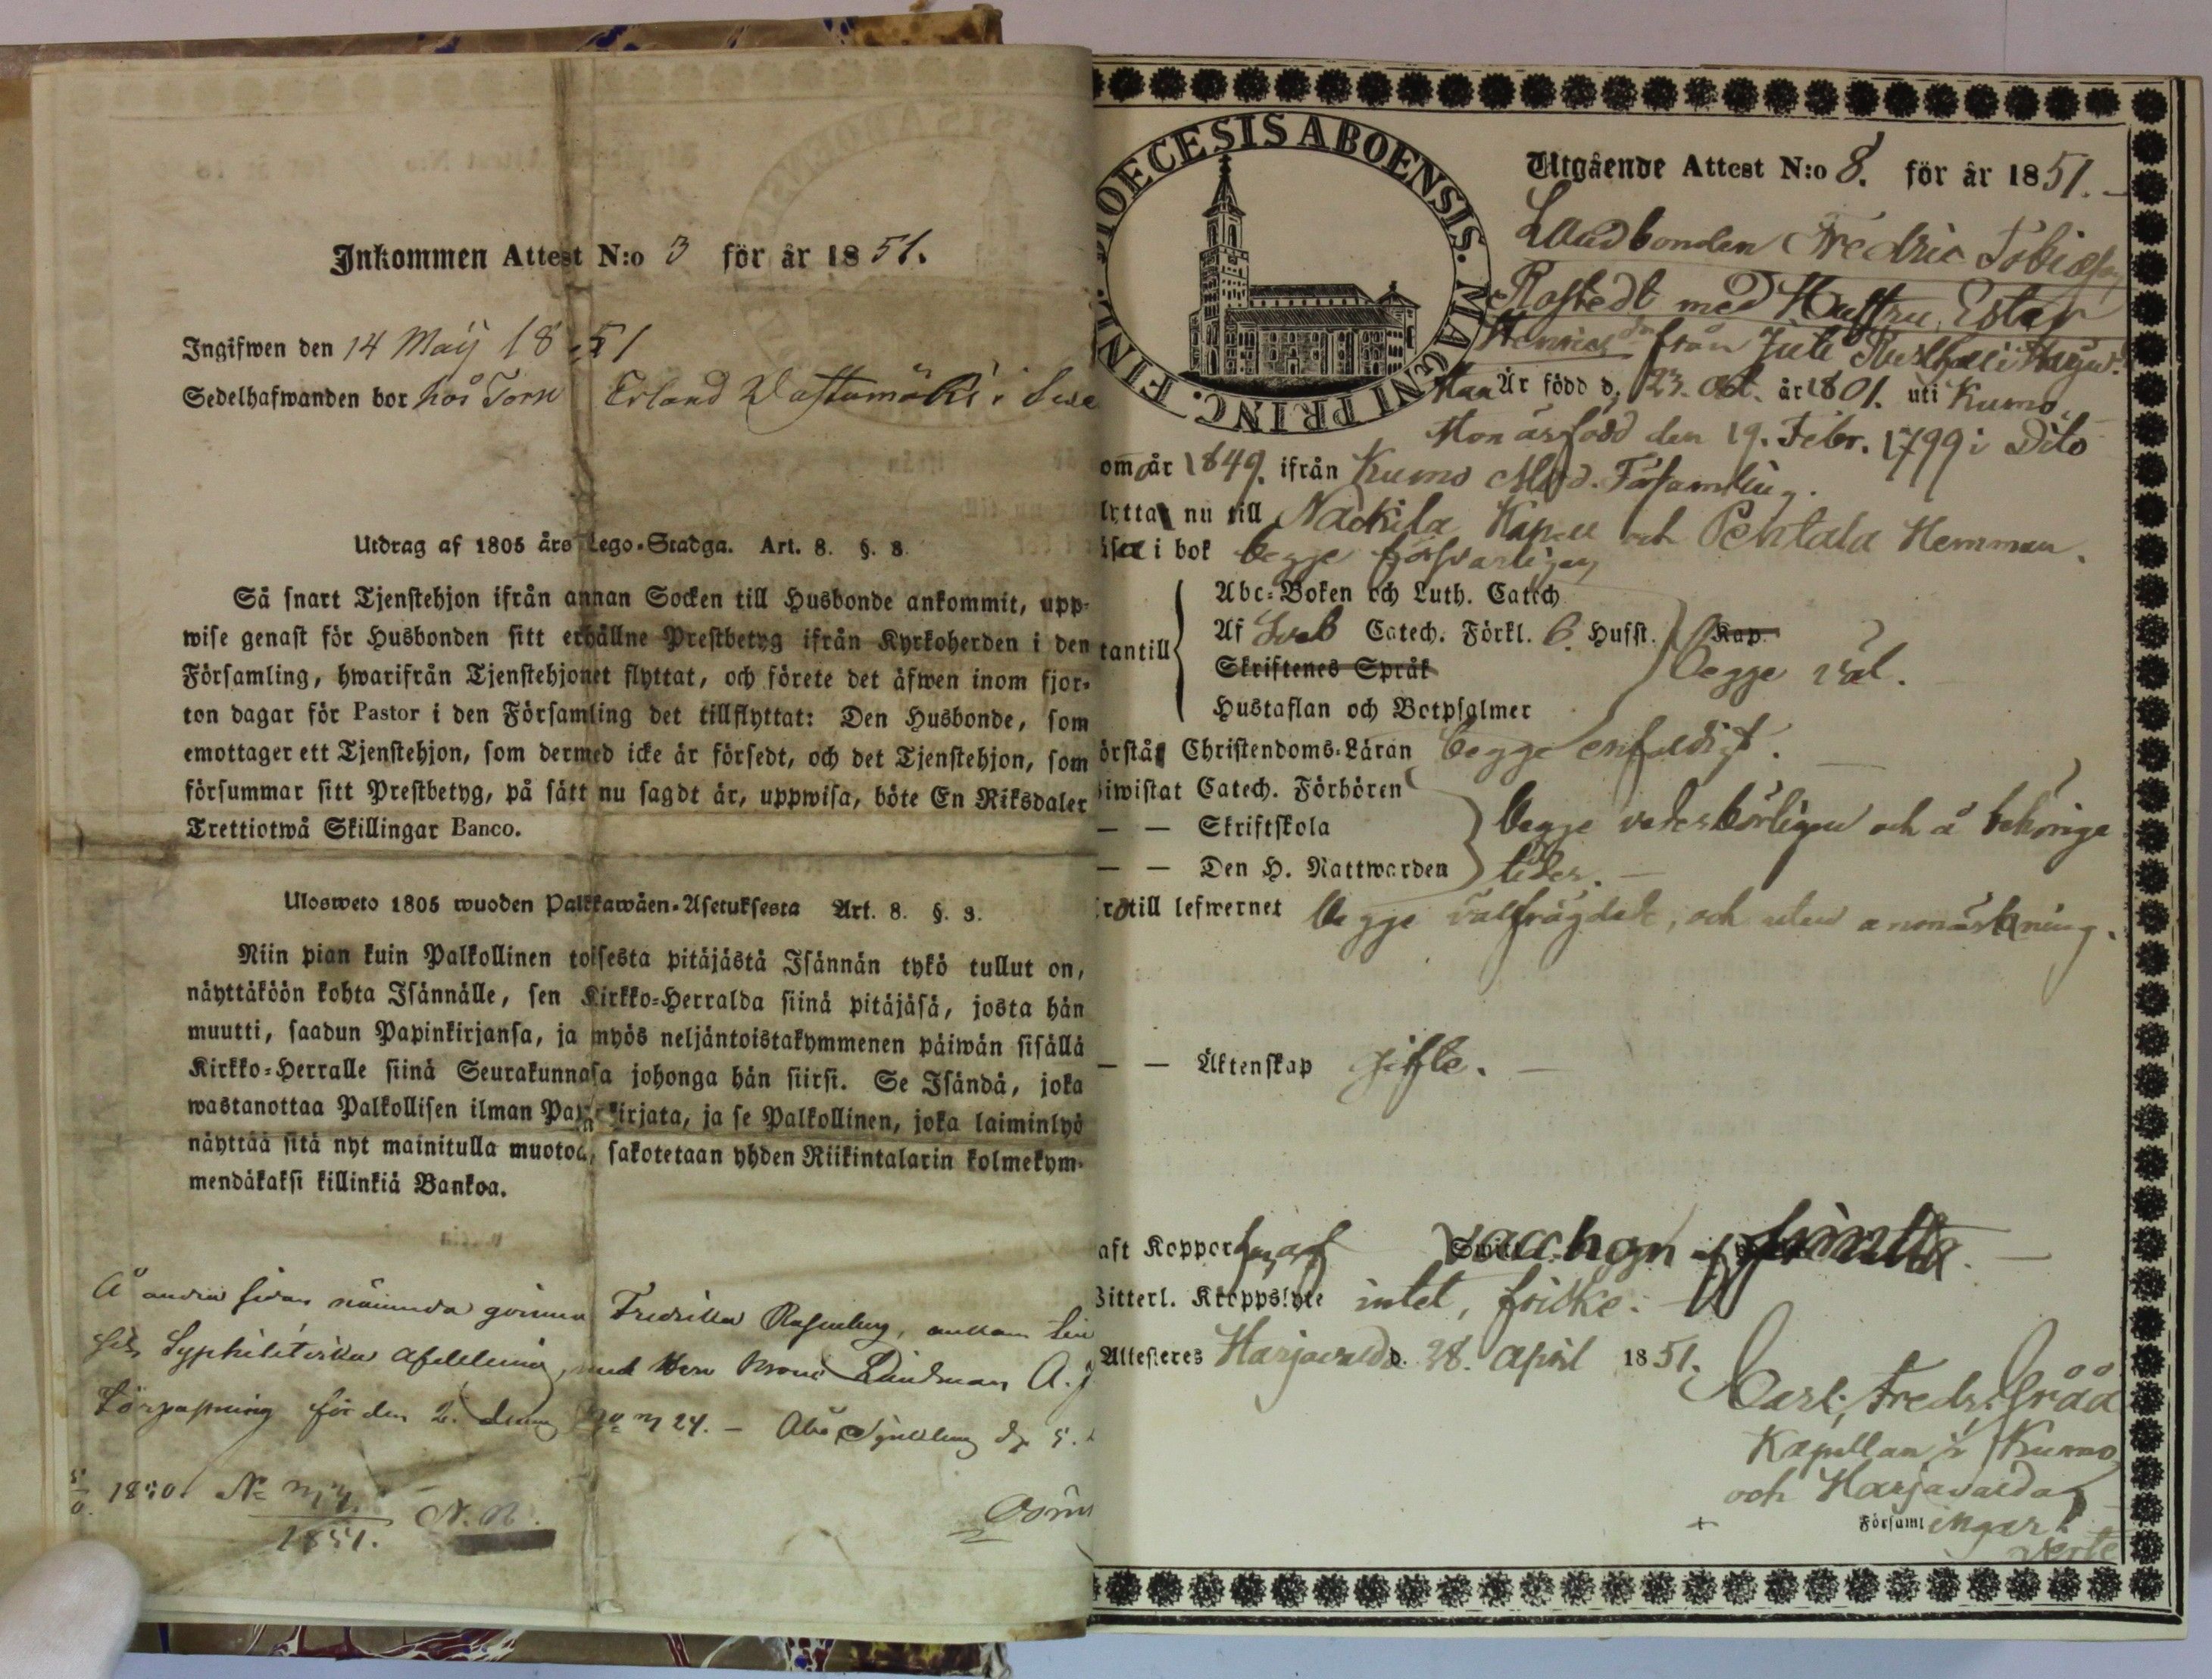 Inkommen Attest N:o 3 för år 1851.
Ingifwen den 14 Maij 1851
Sedelhafwanden bor hos Torp Erland
Utdrag af 1805 års Lego-Stadga. Art. 8. §. 8.
Så snart Tjenstehjon ifrån annan Socken till Husbonde ankommit, upp-
wise genast för Husbonden sitt erhållne Prestbetyg ifrån Kyrkoherden i den
Församling, hwarifrån Tjenstehjonet flyttat, och förete det äfwen inom fjor-
ton dagar för Pastor i den Församling det tillflyttat: Den Husbonde, som
emottager ett Tjenstehjon, som dermed icke är försedt, och det Tjenstehjon, som
försummar sitt Prestbetyg, på sätt nu sagdt är, uppwisa, böte En Riksdaler
Trettiotwå Skillingar Banco.
Ulosweto 1805 wuoden Palkkawäen-Asetuksesta Art. 8. §. 8.
Niin pian kuin Palkollinen toisesta pitäjästä Isännän tykö tullut on,
näyttäköön kohta Isännälle, sen Kirkko-Herralda siinä pitäjäsä, josta hän
muutti, saadun Papinkirjansa, ja myös neljäntoistakymmenen päiwän sisällä
Kirkko-Herralle siinä Seurakunnasa johonga hän siirsi. Se Isändä, joka
wastanottaa Palkollisen ilman Papinkirjata, ja se Palkollinen, joka laiminlyö
näyttää sitä nyt mainitulla muotoa, sakotetaan yhden Riikintalarin kolmekym-
mendäkaksi killinkiä Bankoa.
Å andra sidan nämnda qvinna Fredrika
Syphilitiska Afdelning, med
för den 2. denna 24. –
1850.
1851. N. N.
DIOECESIS ABOENSIS. MAGNI PRINC. FINL.
Utgående Attest N:o 8. för år 1851.
Landbonden Fredric Tobiasson
Rostedt med Hustru Ester
Henricsdr från
Han Är född d. 23. Oct. år 1801. uti Kumo.
Hon är född den 19. Febr. 1799 i Dito
om år 1849. ifrån Kumo Mod. Församling.
lytta nu till Nackila Kapell och Pentala Hemman.
äser i bok begge försvarligen
Abc-Boken och Luth. Catech
tantill Af Sveb Catech. Förkl. 6. Husst. Kap.
Skriftenes Språk begge väl.
Hustaflan och Botpsalmer
örstår Christendoms-Läran begge enfaldigt.
iwistat Catech. Förhören
— — Skriftskola begge vederbörligen och å behöriga
— — Den H. Nattwarden tider.
rd till lefwernet begge välfrägdade, och utan anmärkning.
— — Äktenskap gifte.
aft Koppor
Bitterl. Kroppslyte intet, friske.
Attesteres Harjavalda d. 28. April 1851.
Carl Fredr. Gråå
Kapellan i Kumo
och Harjavalda
Församlingar
Verte